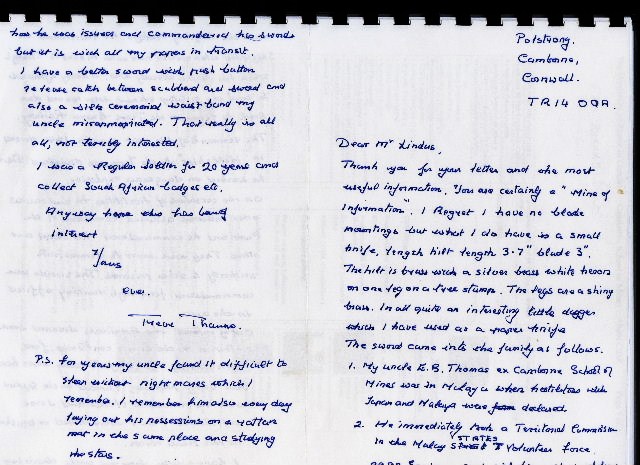 has he was issued and commandered his swords
but it is with all my papers in transit.
I have a better sword with push button
release catch between scabbard and sword and
also a silk ceremonial waist band my
uncle misappropriated. That really is all
all, not terribly interested.
I was a Regular Soldier for 20 years and
collect South African badges etc.
Anyway hope this has being
interest
Y/ours
ever.
Thomas.
P.S. for years my uncle found it difficult to
sleep without night mares which I
remember. I remember him also every day
laying out his possessions on a rattan
mat in the same place and studying
the stars.
Polstrong,
Camborne,
Cornwall.
TR14 0QA.
Dear Mr Lindus,
Thank you for your letter and the most
useful information, "You are certainly a "Mine of
Information". I Regret I have no blade
mountings but what I do have is a small
knife, length hilt length 3.7" blade 3".
The hilt is brass with a silver brass white heron
on one leg on a tree stump. The legs are a shiny
brass. In all quite an interesting little dagger
which I have used as a paper knife
The sword came into the family as follows.
1. My uncle E.B. Thomas ex Camborne School of
Mines was in Malaya when hostilities with
Japan and Malaya were declared
2. He immediately took a Territorial Commission
in the Malay STATES Volunteer force.